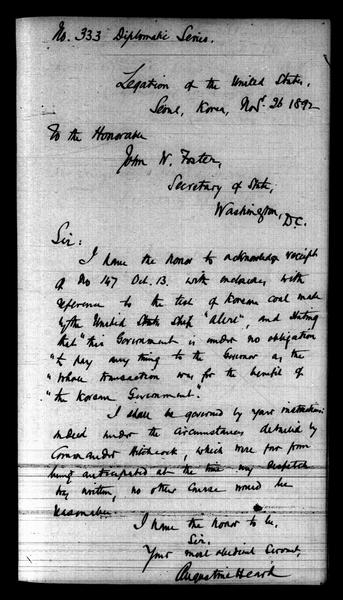 No. 333 Diplomatic Series.
Legation of the United States,
Seoul, Korea, Nov. 26 1892
To the Honorable
John W. Foster,
Secretary of State,
Washington, D.C.
Sir:
I have the honor to acknowledge receipt
of No 147 Oct. 13. with enclosures, with
reference to the test of Korean coal made
by the United States Ship "Alert", and stating
that "this Government is under no obligation
"to pay any thing to the Governor as the
"whole transaction was for the benefit of
"the Korean Government."
I shall be governed by your instructions:
indeed under the circumstances detailed by
Commander Hitchcock, which were far from
being anticipated at the time my despatch
was written, no other course would be
reasonable.
I have the honor to be,
Sir,
Your most obedient Servant,
Augustine Heard